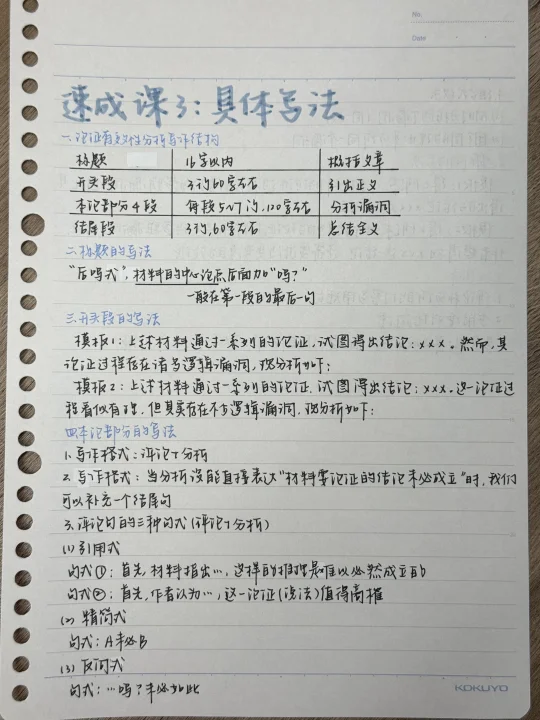 No.
Date
速成课3:具体写法
一.论证有效性分析写作结构
标题 16字以内 概括文章
开头段 3行60字左右 引出正文
本论部分4段 每段5~7行,120字左右 分析漏洞
结尾段 3行,60字左右 总结全文
二.标题的写法
"后吗式",材料的中心论点后面加"吗?"
一般在第一段的最后一句
三.开头段的写法
模板1:上述材料通过一系列的论证,试图得出结论:×××。然而,其
论证过程存在诸多逻辑漏洞,现分析如下:
模板2:上述材料通过一系列的论证,试图得出结论:×××。这一论证过
程看似有理,但其实存在不少逻辑漏洞,现分析如下:
四.本论部分的写法
1.写作格式:评论+分析
2.写作格式:当分析没能直接表达"材料要论证的结论未必成立"时,我们
可以补充一个结尾句
3.评论句的三种句式(评论+分析)
(1)引用式
句式①:首先,材料指出…,这样的推理是难以必然成立的
句式②:首先,作者认为…,这一论证(说法)值得商榷
(2)精简式
句式:A未必B
(3)反问式
句式:…吗?未必如此
KOKUYO